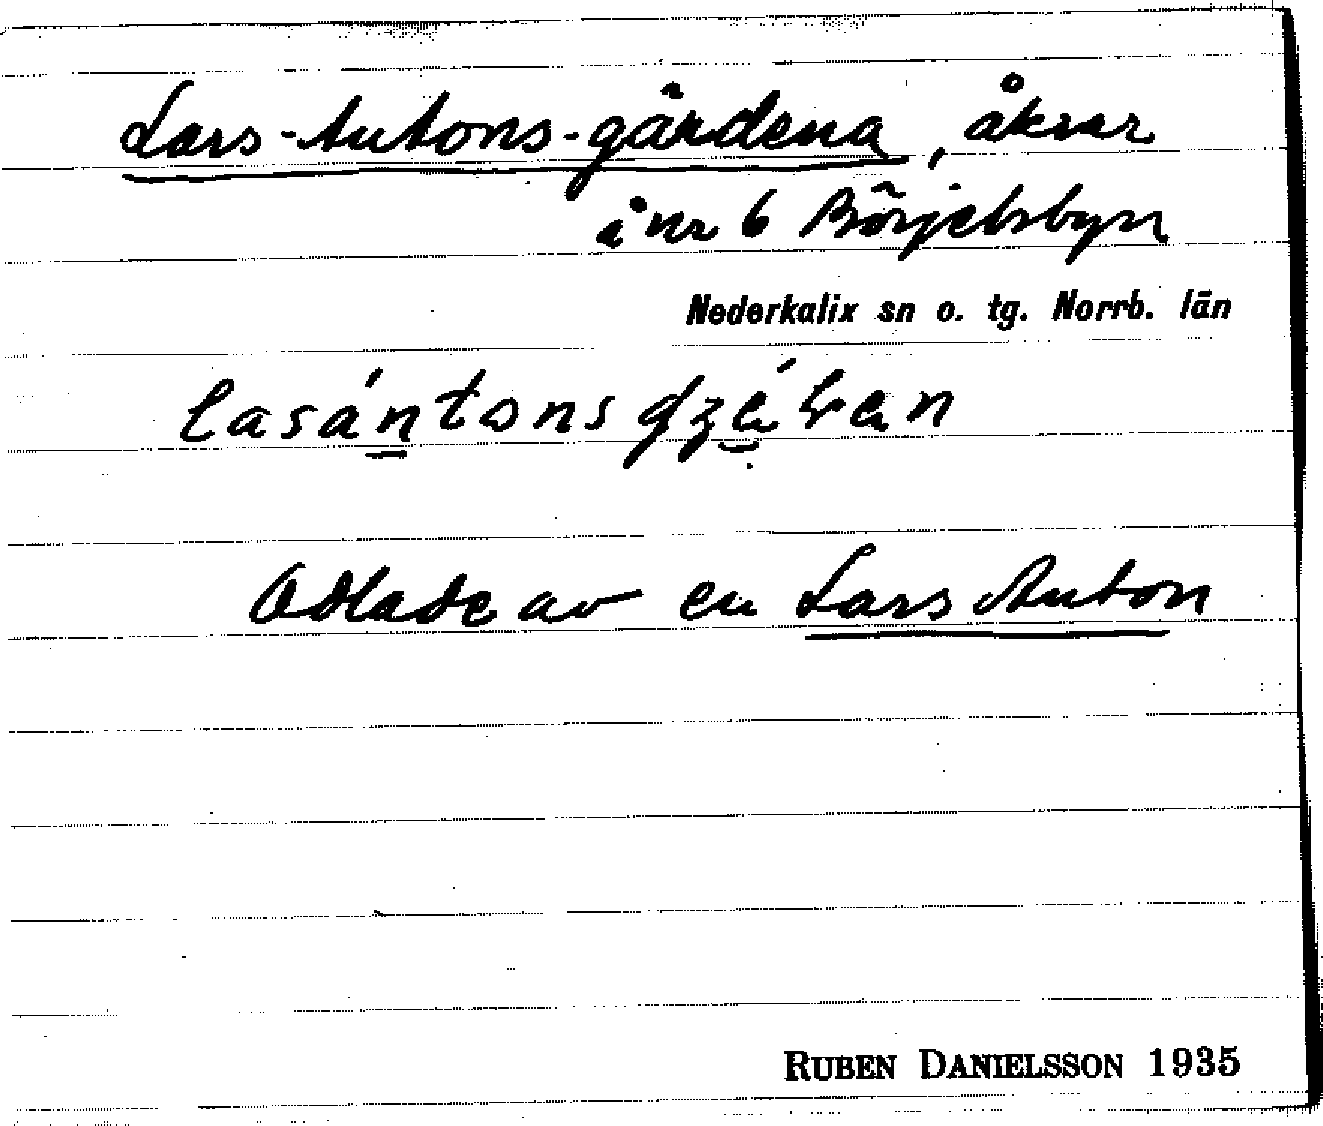 Lars-Antons-gärdena, åkrar
å nr 6 Börjelsbyn
Nederkalix sn o. tg. Norrb. län
Odlade av en Lars Anton
RUBEN DANIELSSON 1935